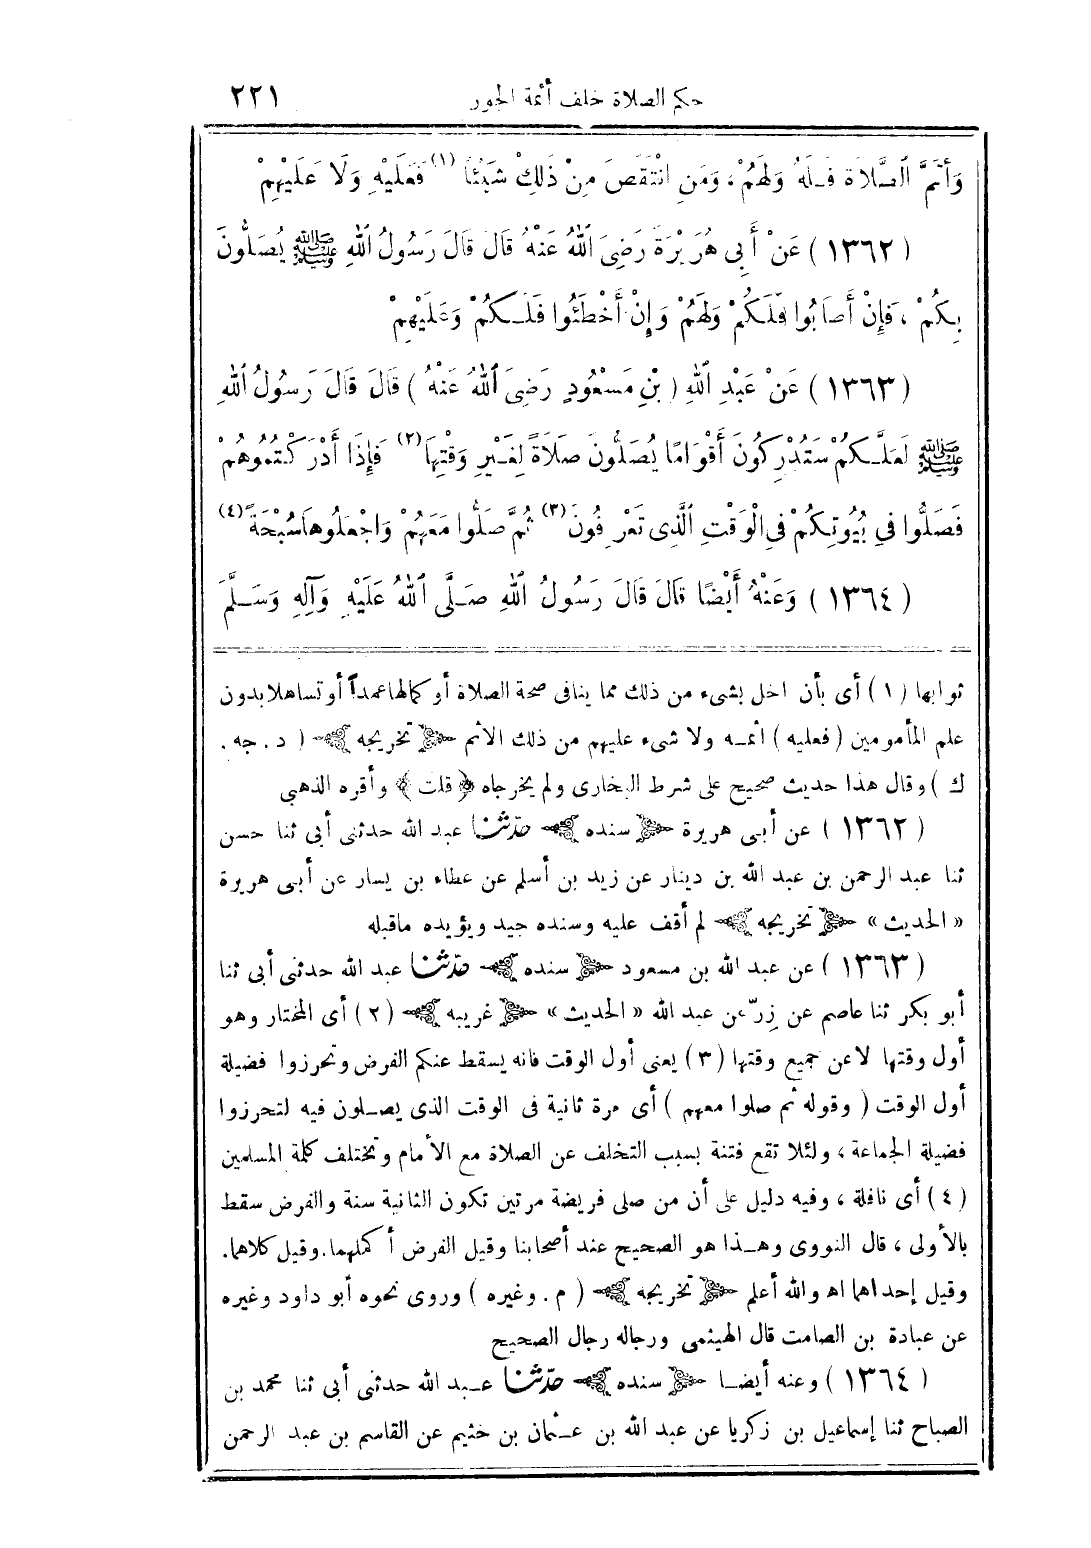 حكم الصلاة خلف أئمة الجور ٢٢١
وَأَتَمَّ الصَّلَاةَ فَلَهُ وَلَهُمْ، وَمَنِ انْتَقَصَ مِنْ ذَلِكَ شَيْئًا (١) فَعَلَيْهِ وَلَا عَلَيْهِمْ
(١٣٦٢) عَنْ أَبِي هُرَيْرَةَ رَضِيَ اللهُ عَنْهُ قَالَ قَالَ رَسُولُ اللهِ ﷺ يُصَلُّونَ
بِكُمْ، فَإِنْ أَصَابُوا فَلَكُمْ وَلَهُمْ وَإِنْ أَخْطَئُوا فَلَكُمْ وَعَلَيْهِمْ
(١٣٦٣) عَنْ عَبْدِ اللهِ (بْنِ مَسْعُودٍ رَضِيَ اللهُ عَنْهُ) قَالَ قَالَ رَسُولُ اللهِ
ﷺ لَعَلَّكُمْ سَتُدْرِكُونَ أَقْوَامًا يُصَلُّونَ صَلَاةً لِغَيْرِ وَقْتِهَا (٢) فَإِذَا أَدْرَكْتُمُوهُمْ
فَصَلُّوا فِي بُيُوتِكُمْ فِي الْوَقْتِ الَّذِي تَعْرِفُونَ (٣) ثُمَّ صَلُّوا مَعَهُمْ وَاجْعَلُوهَا سُبْحَةً (٤)
(١٣٦٤) وَعَنْهُ أَيْضًا قَالَ قَالَ رَسُولُ اللهِ صَلَّى اللهُ عَلَيْهِ وَآلِهِ وَسَلَّمَ
ثوابها (١) أى بأن اخل بشىء من ذلك مما ينافى صحة الصلاة أو كمالها عمداً أو تساهلا بدون
علم المأمومين (فعليه) اثمه ولا شىء عليهم من ذلك الاثم ﴿تخريجه﴾ (د. جه.
ك) وقال هذا حديث صحيح على شرط البخارى ولم يخرجاه ﴿قلت﴾ وأقره الذهبى
(١٣٦٢) عن أبى هريرة ﴿سنده﴾ حدّثنا عبد الله حدثنى أبى ثنا حسن
ثنا عبد الرحمن بن عبد الله بن دينار عن زيد بن أسلم عن عطاء بن يسار عن أبى هريرة
«الحديث» ﴿تخريجه﴾ لم أقف عليه وسنده جيد ويؤيده ماقبله
(١٣٦٣) عن عبد الله بن مسعود ﴿سنده﴾ حدّثنا عبد الله حدثنى أبى ثنا
أبو بكر ثنا عاصم عن زِرّ عن عبد الله «الحديث» ﴿غريبه﴾ (٢) أى المختار وهو
أول وقتها لا عن جميع وقتها (٣) يعنى أول الوقت فانه يسقط عنكم الفرض وتحرزوا فضيلة
أول الوقت (وقوله ثم صلوا معهم) أى مرة ثانية فى الوقت الذى يصلون فيه لتحرزوا
فضيلة الجماعة، ولئلا تقع فتنة بسبب التخلف عن الصلاة مع الأمام وتختلف كلمة المسلمين
(٤) أى نافلة، وفيه دليل على أن من صلى فريضة مرتين تكون الثانية سنة والفرض سقط
بالأولى، قال النووى وهذا هو الصحيح عند أصحابنا وقيل الفرض أكملهما. وقيل كلاهما.
وقيل إحداهما اه والله أعلم ﴿تخريجه﴾ (م. وغيره) وروى نحوه أبو داود وغيره
عن عبادة بن الصامت قال الهيثمى ورجاله رجال الصحيح
(١٣٦٤) وعنه أيضا ﴿سنده﴾ حدّثنا عبد الله حدثنى أبى ثنا محمد بن
الصباح ثنا إسماعيل بن زكريا عن عبد الله بن عثمان بن خثيم عن القاسم بن عبد الرحمن